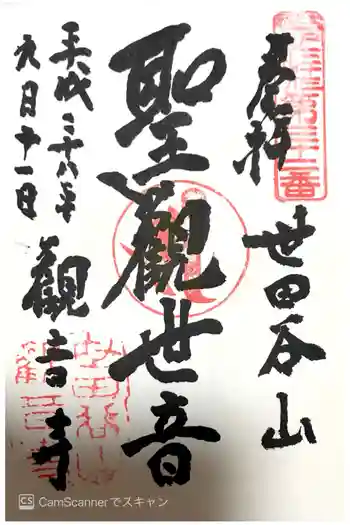 奉拝
世田谷山
聖觀世音
平成二十八年
六月十一日
觀音寺
CS CamScannerでスキャン